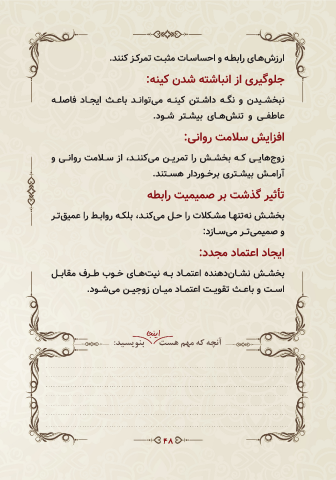 ارزش‌های رابطه و احساسات مثبت تمرکز کنند.
جلوگیری از انباشته شدن کینه:
نبخشیدن و نگه داشتن کینه می‌تواند باعث ایجاد فاصله
عاطفی و تنش‌های بیشتر شود.
افزایش سلامت روانی:
زوج‌هایی که بخشش را تمرین می‌کنند، از سلامت روانی و
آرامش بیشتری برخوردار هستند.
تأثیر گذشت بر صمیمیت رابطه
بخشش نه‌تنها مشکلات را حل می‌کند، بلکه روابط را عمیق‌تر
و صمیمی‌تر می‌سازد:
ایجاد اعتماد مجدد:
بخشش نشان‌دهنده اعتماد به نیت‌های خوب طرف مقابل
است و باعث تقویت اعتماد میان زوجین می‌شود.
آنچه که مهم هست اینجا بنویسید:
۴۸